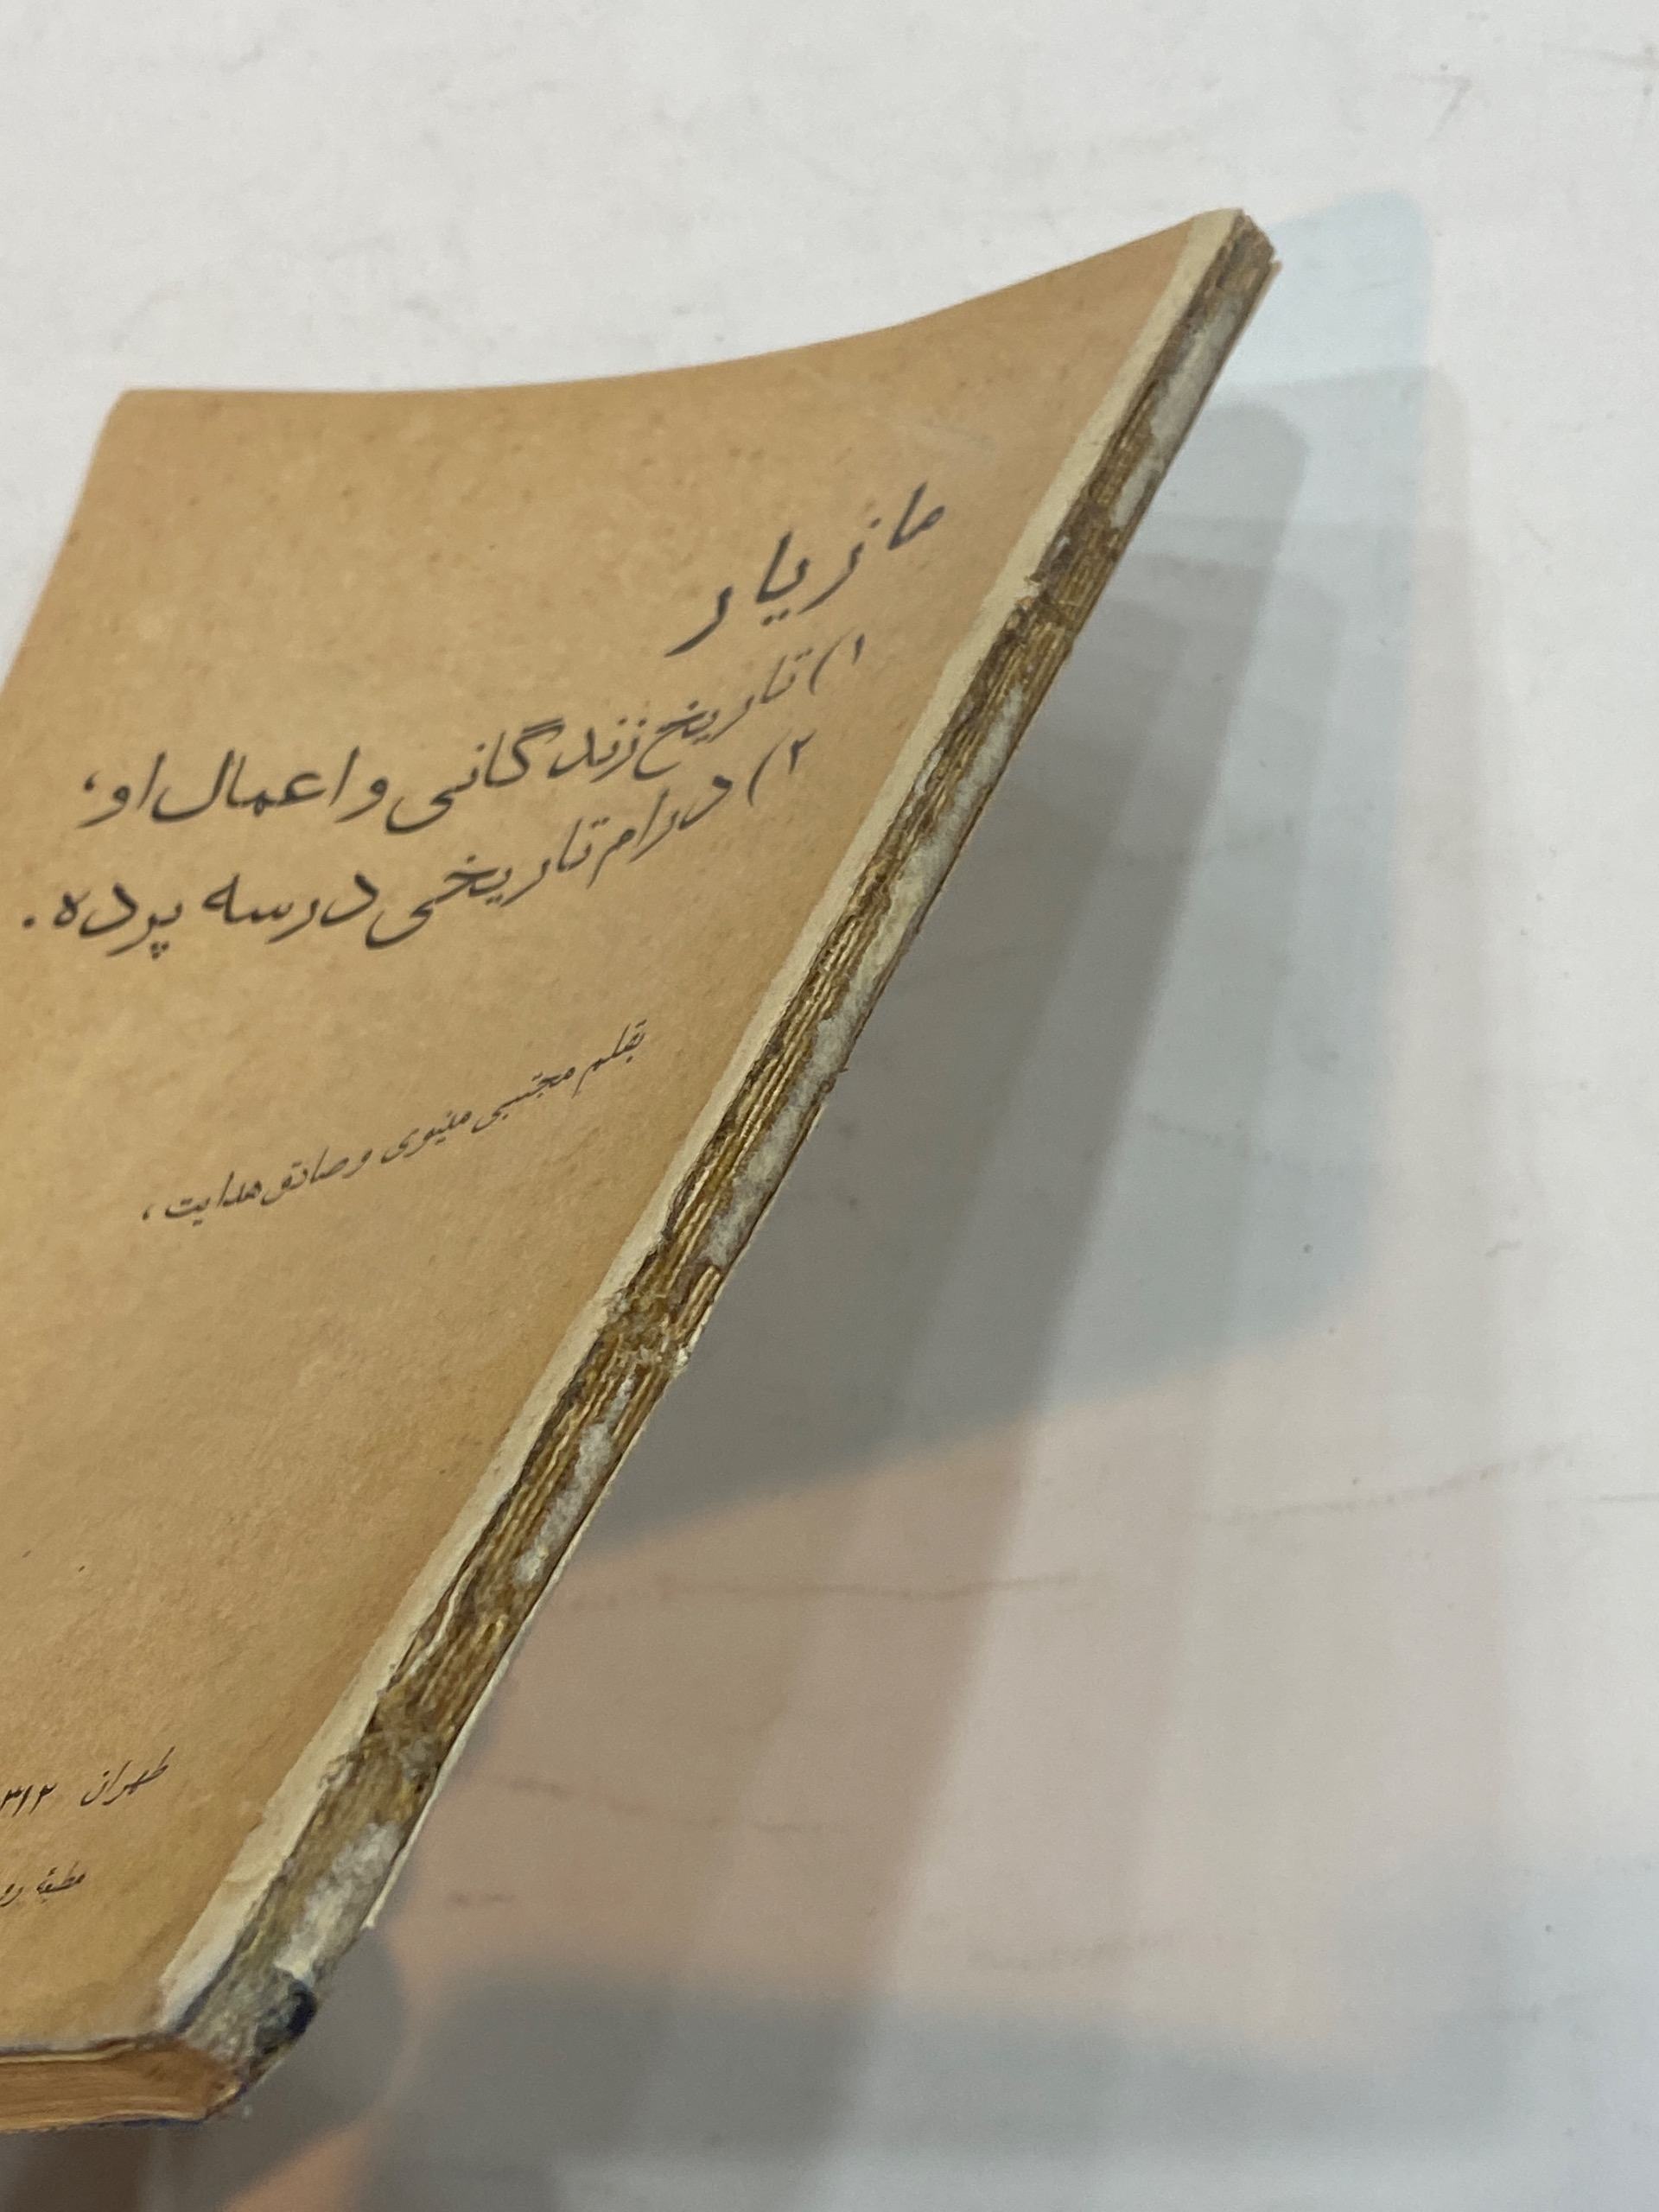 مازیار
۱) تاریخ زندگانی و اعمال او،
۲) درام تاریخی در سه پرده.
بقلم مجتبی مینوی و صادق هدایت،
طهران
مطبعهٔ